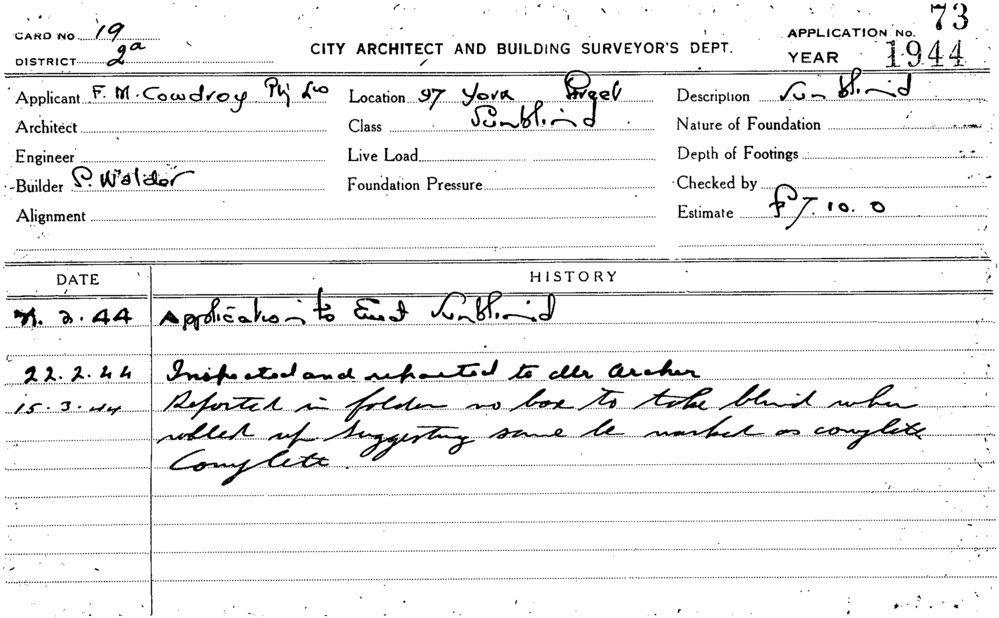 73
CARD NO 19
APPLICATION No.
DISTRICT 2a
CITY ARCHITECT AND BUILDING SURVEYOR'S DEPT.
YEAR 1944
Applicant F. M. Cowdroy Pty Ltd
Location 97 York Street
Description Sunblind
Architect
Class Sunblind
Nature of Foundation
Engineer
Live Load
Depth of Footings
Builder S. Walder
Foundation Pressure
Checked by
Alignment
Estimate £7.10.0
DATE
HISTORY
2.44 Application to Erect Sunblind
22.2.44 Inspected and reported to Mr Archer
15.3.44 Reported in folder no box to take blind when
rolled up suggesting same be marked as complete
Complete.